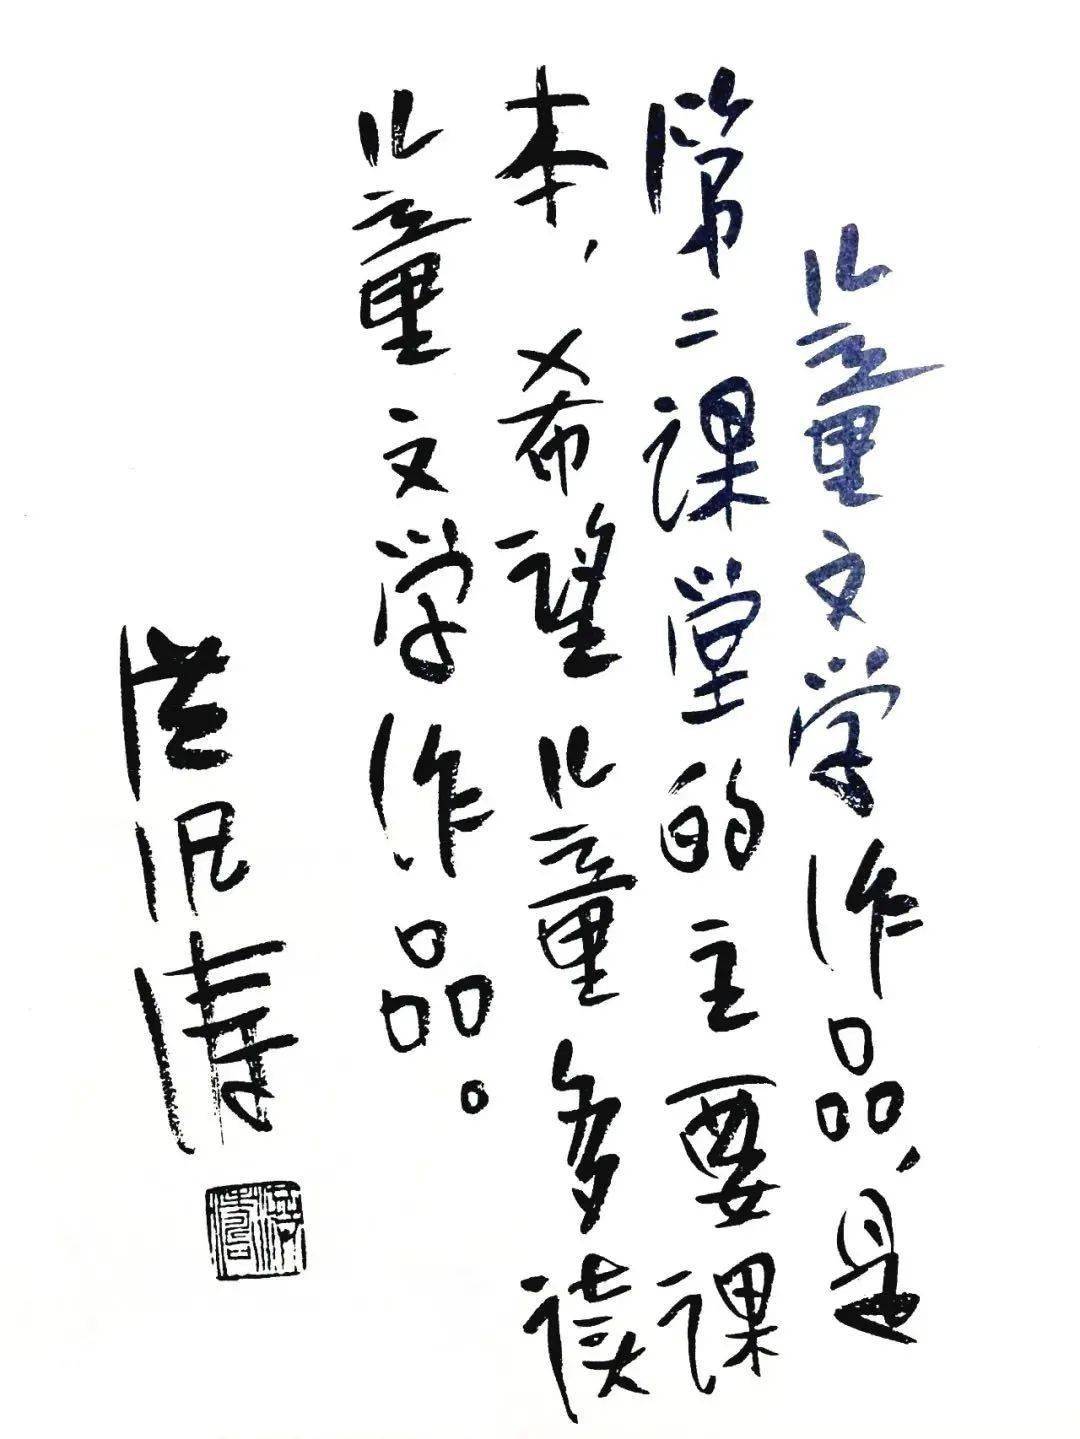 儿童文学作品，是
第二课堂的主要课
本，希望儿童多读
儿童文学作品。
洪汛涛